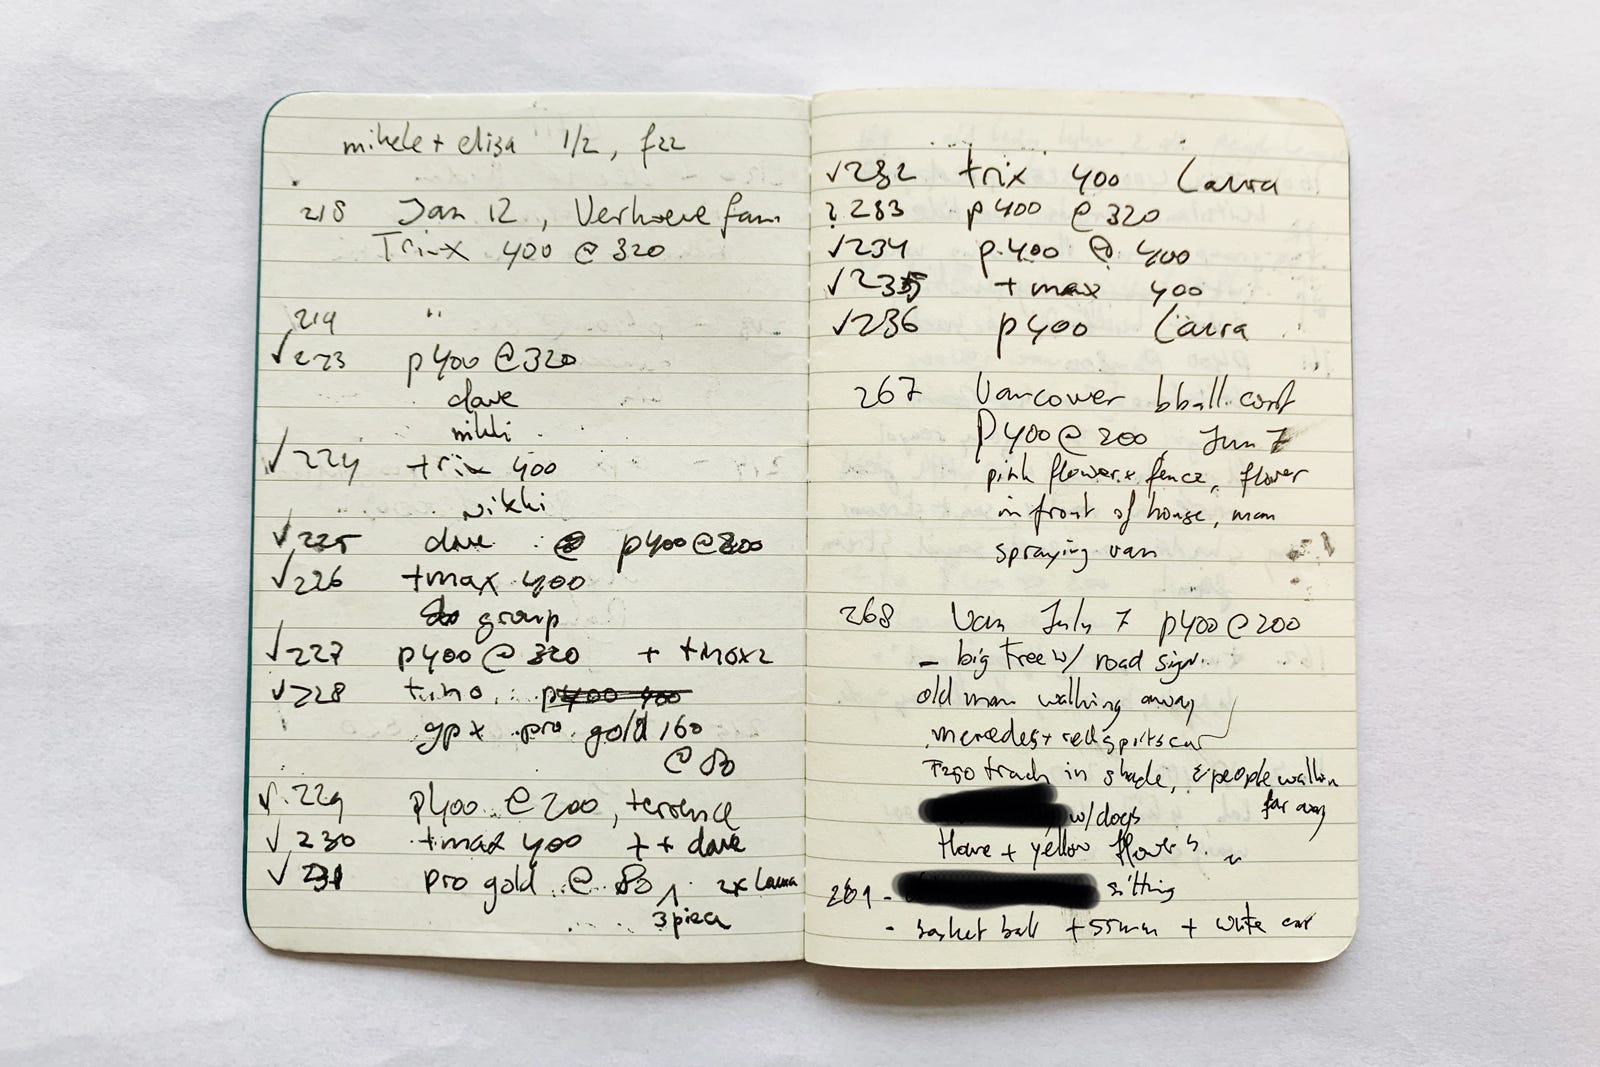 mihele + elisa 1/2, f22
218 Jan 12, Verhoeve fam
Tri-x 400 @ 320
219 "
√223 p400 @ 320
dave
nikki
√224 trix 400
nikki
√225 dave @ p400 @ 200
√226 tmax 400
group
√227 p400 @ 320 + tmax 2
√228
gpx pro gold 160
@ 80
√229 p400 @ 200, terrence
√230 tmax 400 ++ dave
√231 pro gold @ 80 2x Laura
3 pieca
√232 trix 400 Laura
? 233 p400 @ 320
√234 p400 @ 400
√235 tmax 400
√236 p400 Laura
267 Vancouver bball court
P400 @ 200, Jun 7
pink flower + fence, flower
in front of house, man
spraying van
268 Van July 7 p400 @ 200
- big tree w/ road sign
old man walking away
mercedes + red sportscar
F250 truck in shade, 2 people walkin
far away
w/dogs
+ yellow flowers
269 - sitting
- basket ball + 55mm + white car